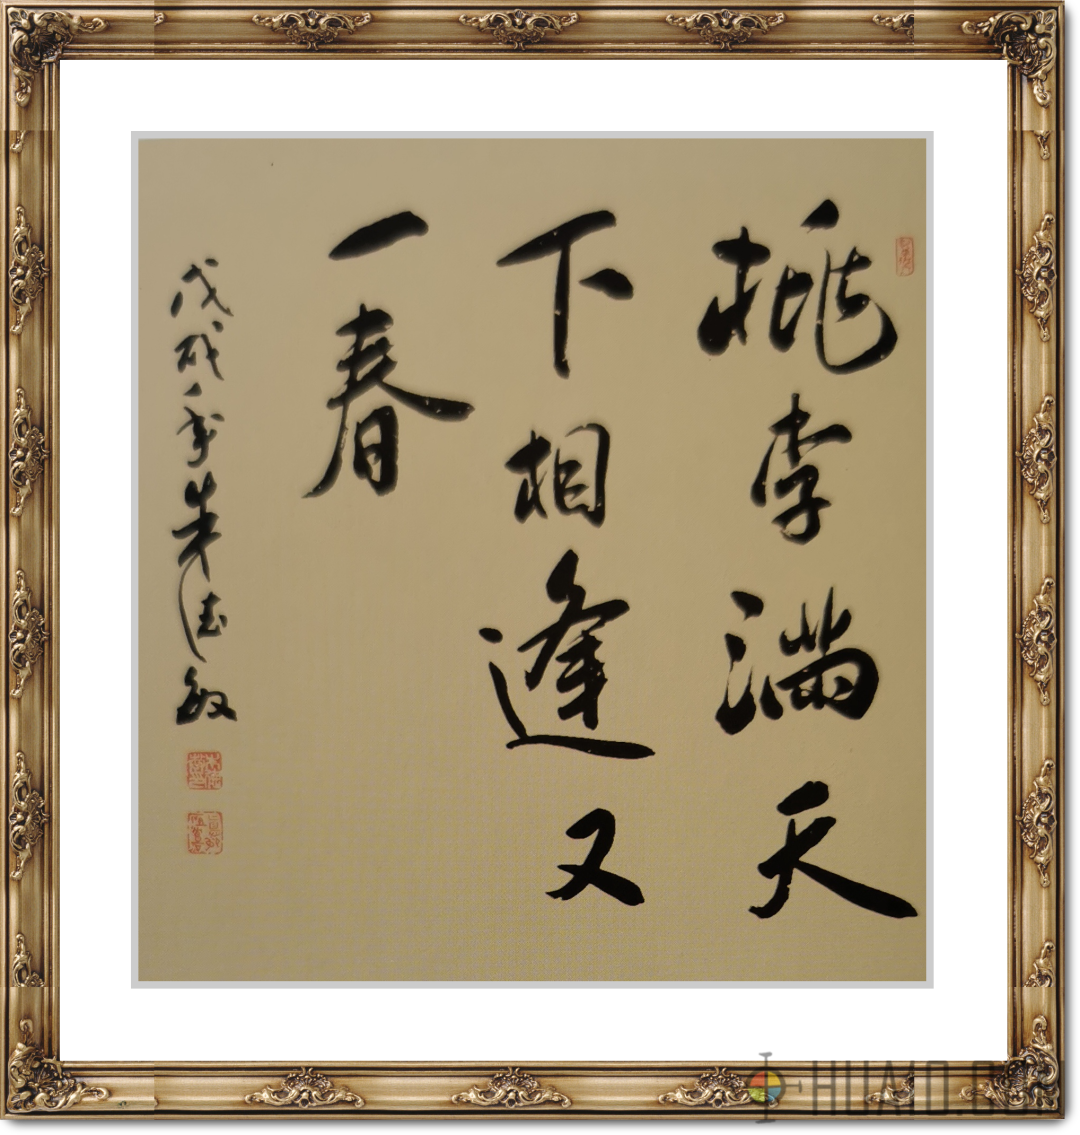 桃李满天
下相逢又
一春
戊戌年朱德敏